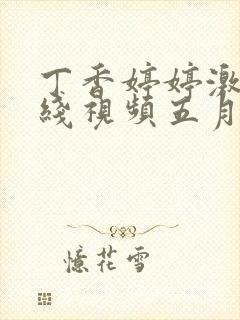 丁香婷婷激
綫視頻五月
憶花雪